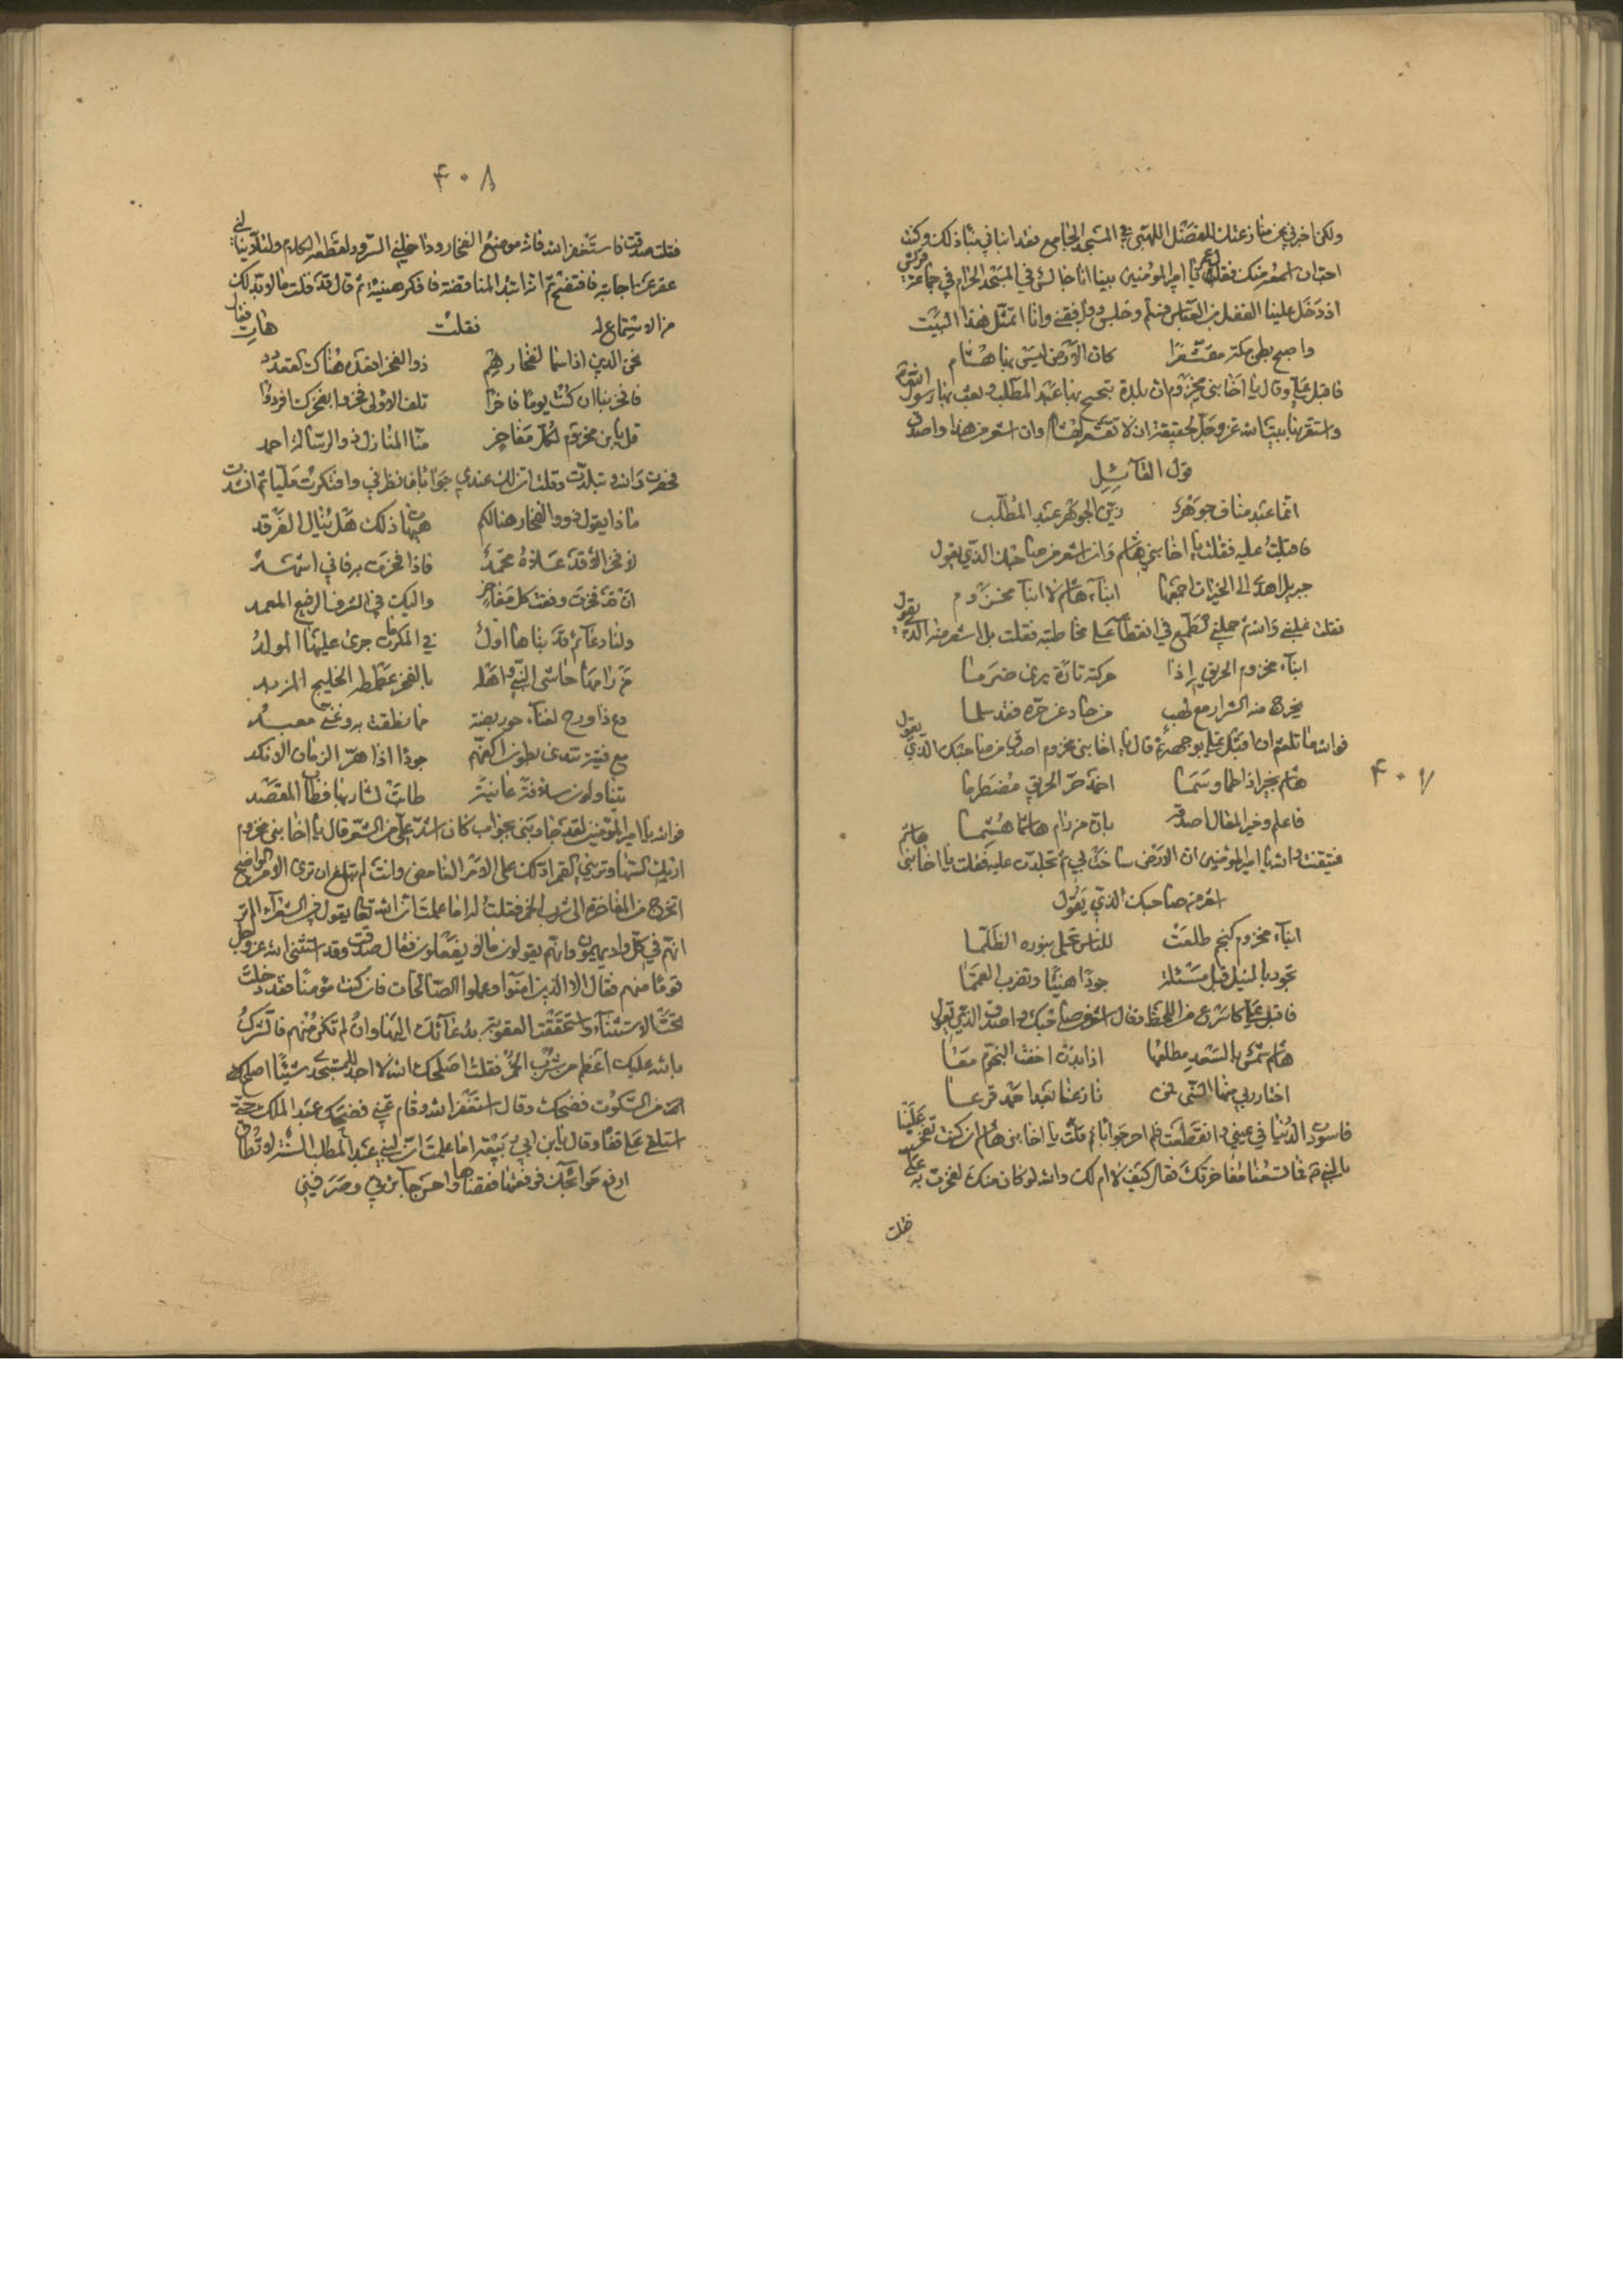 ٤٠٧
ولكن اخبرني عن منازعتك للفضل اللهبي في المسجد الجامع فقد اتاني نبأ ذلك وكنت
احب ان اسمعه منك فقلت نعم يا امير المؤمنين بينا انا جالس في المسجد الحرام في جماعة من قريش
اذ دخل علينا الفضل بن العباس فسلم وجلس ووافقني وانا اتمثل بهذا البيت
واصبح بطن مكة مقشعرا كان الارض ليس بها هشام
فاقبل علي وقال يا اخا بني مخزوم ان بلدة تبحبح بها عبد المطلب وبعث بها رسول الله
واستقر بها بيت الله عز وجل لحقيقة ان لا تقشعر لهشام وان اشعر من هذا واصدق
قول القائل
انما عبد مناف جوهر زين الجوهر عبد المطلب
فاقبلت عليه فقلت يا اخا بني هاشم وان اشعر من صاحبك الذي يقول
جبريل اهدى الى الخيرات اجمعها ابناء هاشم لا ابناء مخزوم
فقلت غلبني والله ثم حملني الطمع في انقطاعه على مخاطبته فقلت بل اشعر منه الذي يقول
ابناء مخزوم الحريق اذا حركته تارة ترى ضرما
يخرج منه الشرار مع لهب من حاد عن حره فقد سلما
فوالله ما تلعثم ان اقبل علي بوجهه ثم قال يا اخا بني مخزوم اصدق من صاحبك الذي يقول
هاشم بحر اذا طما وسما اخمد حر الحريق مضطرما
فاعلم وخير المقال اصدقه بان من رام هاشما هشما
فتيقنت والله يا امير المؤمنين ان الارض ساخت بي ثم تجلدت عليه فقلت يا اخا بني هاشم
اشعر من صاحبك الذي يقول
ابناء مخزوم انجم طلعت للناس تجلى بنوره الظلما
تجود بالنيل قبل مسئلة جودا هنيئا وتضرب البهما
فاقبل علي كاسرع من اللحظ وقال اشعر من صاحبك واصدق الذي يقول
هاشم شمس بالسعد مطلعها اذا بدت اخفت النجوم معا
اختار ربي منها النبي فمن نازعنا بعد احمد قرعا
فاسودت الدنيا في عيني وانقطعت فلم احر جوابا ثم قلت يا اخا بني هاشم ان كنت تفخر علينا
بالنبي فما تسعنا مفاخرتك فقال كيف لا ام لك والله لو كان منك لفخرت به علي
فقلت
٤٠٨
فقلت صدقت فاستغفر الله فانه موضع الفخار وداخلني السرور لقطعه الكلام ولئلا ينالني
عوز عن اجابته فافتضح ثم انه ابتدأ المناقضة فافكر هنيئة ثم قال قد قلت ما لا بد لك
من الاستماع له فقلت هات فقال
نحن الذين اذا سما لفخارهم ذو الفخر اقعده هناك القعدد
فافخر بنا ان كنت يوما فاخرا تلف الاولى فخروا بفخرك افردوا
قل يا بن مخزوم لكل مفاخر منا المبارك ذو الرسالة احمد
فحصرت والله وتبلدت وقلت ان لك عندي جوابا فانظرني وافتكرت مليا ثم انشدت
ماذا يقول ذوو الفخار هنالكم هيهات ذلك هل ينال الفرقد
لا فخر الا قد علاه محمد فاذا فخرت به فاني اشهد
ان قد فخرت وفقت كل مفاخر واليك في الشرف الرفيع المعمد
ولنا دعائم قد بناها اول في المكرمات جرى عليها المولد
من رامها حاشى النبي واهله بالفخر غطمطه الخليج المزبد
دع ذا ورح لغناء خود بضة مما نطقت به وغنى معبد
مع فتية تندى بطون اكفهم جودا اذا هر الزمان الانكد
يتناولون سلافة عانية طابت لشاربها وطاب المقعد
فوالله يا امير المؤمنين لقد جاوبني بجواب كان اشد علي من الشعر قال يا اخا بني مخزوم
اريك السها وتريني القمر ادلك على الامر الغامض وانت لم تبلغ ان ترى الامر الواضح
اتخرج من المفاخرة الى شرب الخمر فقلت له اما علمت ان الله تعالى يقول في الشعراء الم تر
انهم في كل واد يهيمون وانهم يقولون ما لا يفعلون فقال صدقت وقد استثنى الله عز وجل
قوما منهم فقال الا الذين امنوا وعملوا الصالحات فان كنت مؤمنا فقد دخلت
تحت الاستثناء واستحققت العقوبة بدعائك اليها وان لم تكن منهم فالشرك
بالله عليك اعظم من شرب الخمر فقلت اصلحك الله لا اجد للمستجدي شيئا اصلح
له من السكوت فضحك وقال استغفر الله وقام عني فضحك عبد الملك حتى
استلقى على قفاه وقال يا بن ابي ربيعة اما علمت ان لبني عبد المطلب السنة لا تطاق
ارفع حوائجك فرفعتها فقضاها واحسن جائزتي وصرفني